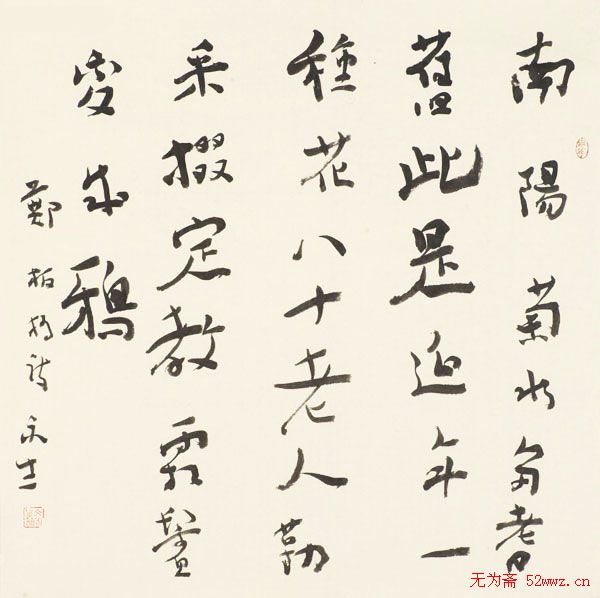 南陽菊水多耆
舊此是延年一
種花八十老人勤
采掇定教霜鬢
變成鴉
鄭板橋詩
无为斋 52wwz.cn